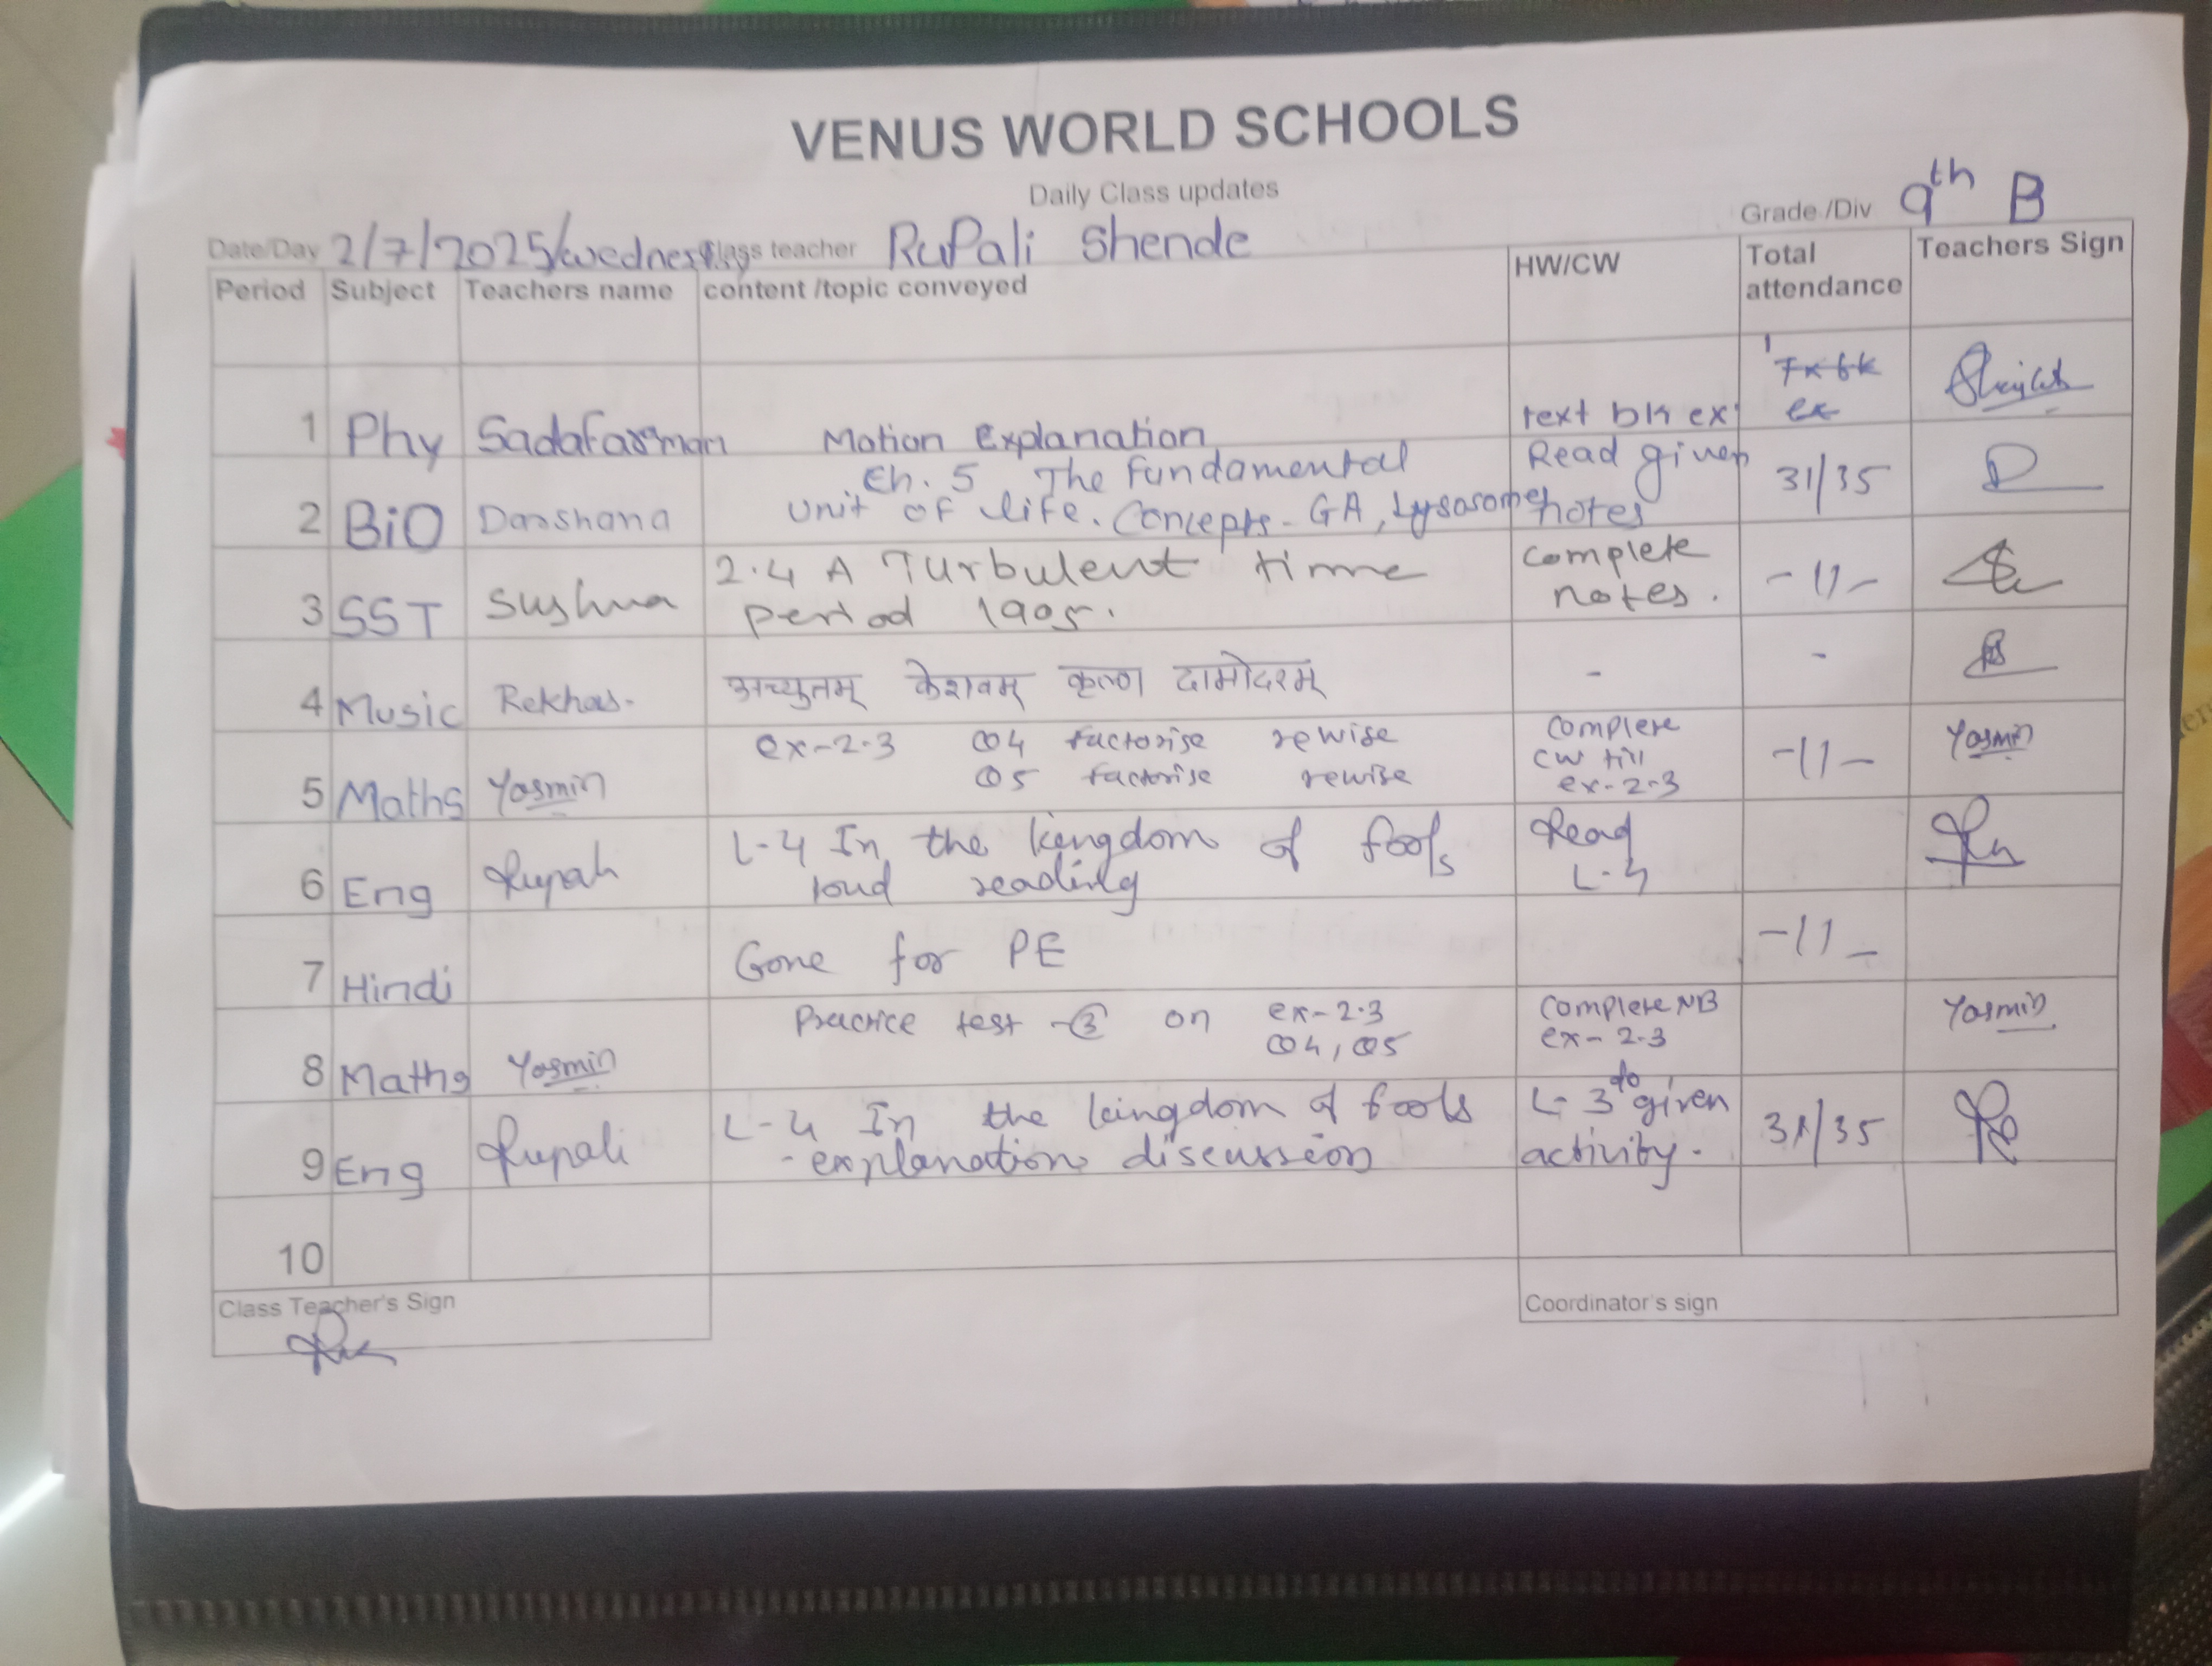 VENUS WORLD SCHOOLS
Daily Class updates
Grade /Div 9th B
Date/Day 2/7/2025/wednesday Class teacher RuPali Shende
Period Subject Teachers name content /topic conveyed HW/CW Total attendance Teachers Sign
1 Phy Motion Explanation text bk ex
2 BiO Darshana Ch. 5 The Fundamental Read given 31/35 D
unit of life. Concepts - GA, Lysosome notes
3 SST Sushma 2.4 A Turbulent time complete -11-
period 1905. notes.
4 Music Rekha अच्युतम् केशवम् कृष्ण दामोदरम् - -
5 Maths Yasmin ex-2.3 Q4 factorise rewise complete -11- Yasmin
Q5 factorise rewise cw till
ex-2.3
6 Eng Rupali L-4 In the kingdom of fools Read
loud reading L-4
7 Hindi Gone for PE -11-
8 Maths Yasmin Practice test -3 on ex-2.3 complete NB Yasmin
Q4, Q5 ex-2.3
9 Eng Rupali L-4 In the kingdom of fools L-3 do given 31/35
- explanation discussion activity.
10
Class Teacher's Sign Coordinator's sign